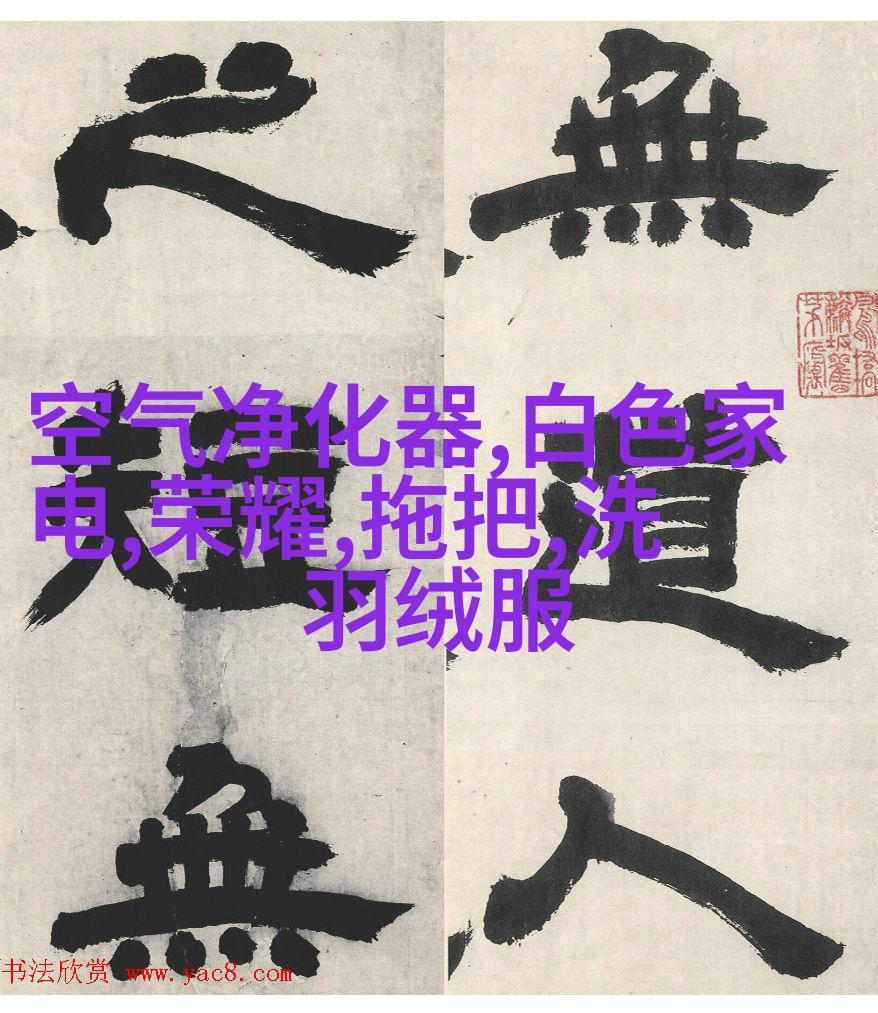 無道人
之短無
空气净化器,白色家
电,荣耀,拖把,洗
羽绒服
书法欣赏 www.yac8.com